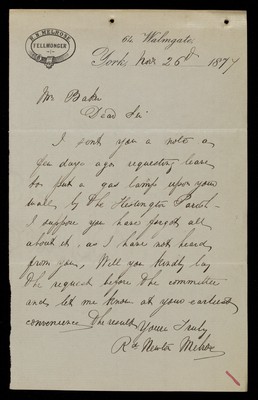 R. N. MELROSE
FELLMONGER
64 Walmgate,
York, Nov 26th 1877
Mr Baker
Dear Sir
I sent you a note a
few days ago requesting leave
to put a gas lamp upon your
wall, by the Heslington Parish -
I suppose you have forgot all
about it, as I have not heard
from you, Will you kindly lay
the request before the committee
and let me know at your earliest
convenience the result
Yours Truly
R Newton Melrose